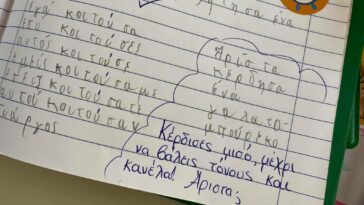 ένα
κοιτούσα
κοιτούσες
αυτός κοιτούσε
εμείς κοιτούσαμε
εσείς κοιτούσατε
αυτοί κοιτούσαν
Άριστα
κέρδησα
ένα
γαλατο-
μπούρεκο
Κέρδισες μισό, μέχρι
να βάλεις τόνους και
κανέλα! Άριστα;